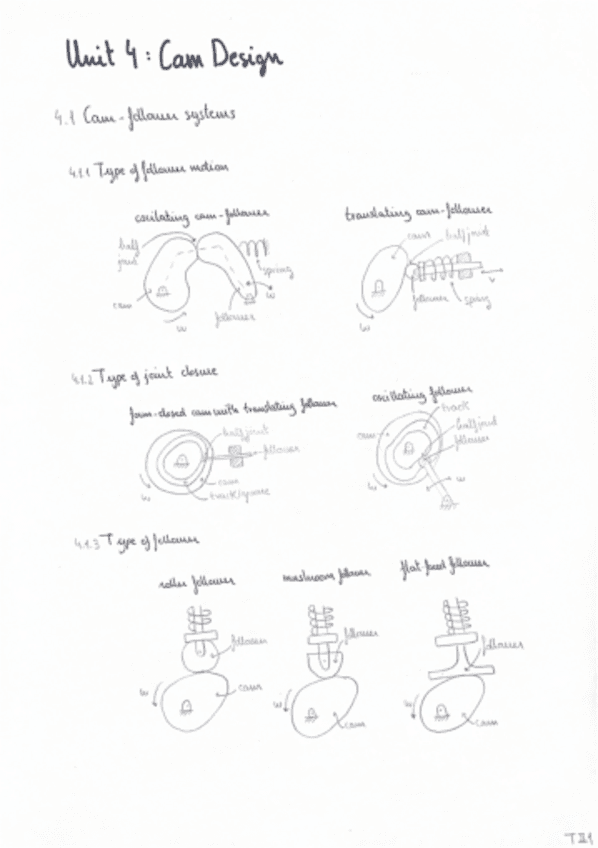 Unit 4: Cam Design
4.1 Cam-follower systems
4.1.1 Type of follower motion
oscilating cam-follower
translating cam-follower
half joint
cam
half joint
spring
cam
follower
w
w
follower
spring
v
w
4.1.2 Type of joint closure
form-closed cam with translating follower
oscillating follower
track
half joint
cam
half joint
follower
follower
cam
w
track/groove
w
w
4.1.3 Type of follower
roller follower
mushroom follower
flat-faced follower
follower
follower
follower
w
cam
w
cam
w
cam